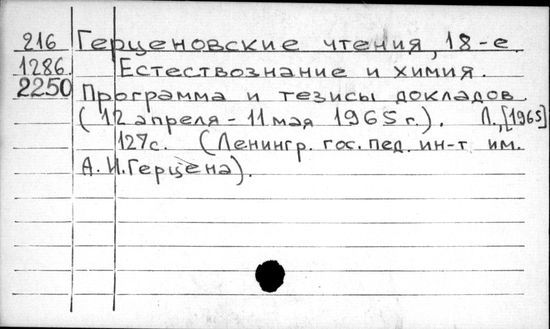 216 Герценовские чтения, 18-е.
1286. Естествознание и химия.
2250 Программа и тезисы докладов.
(12 апреля - 11 мая 1965 г.). Л., [1965]
127с. (Ленингр. гос. пед. ин-т им.
А. И. Герцена).